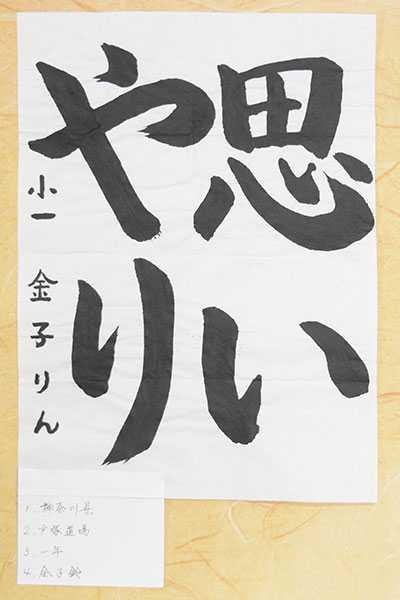 思い
やり
小一 金子りん
1. 神奈川県
2. 戸塚道場
3. 一年
4. 金子鈴